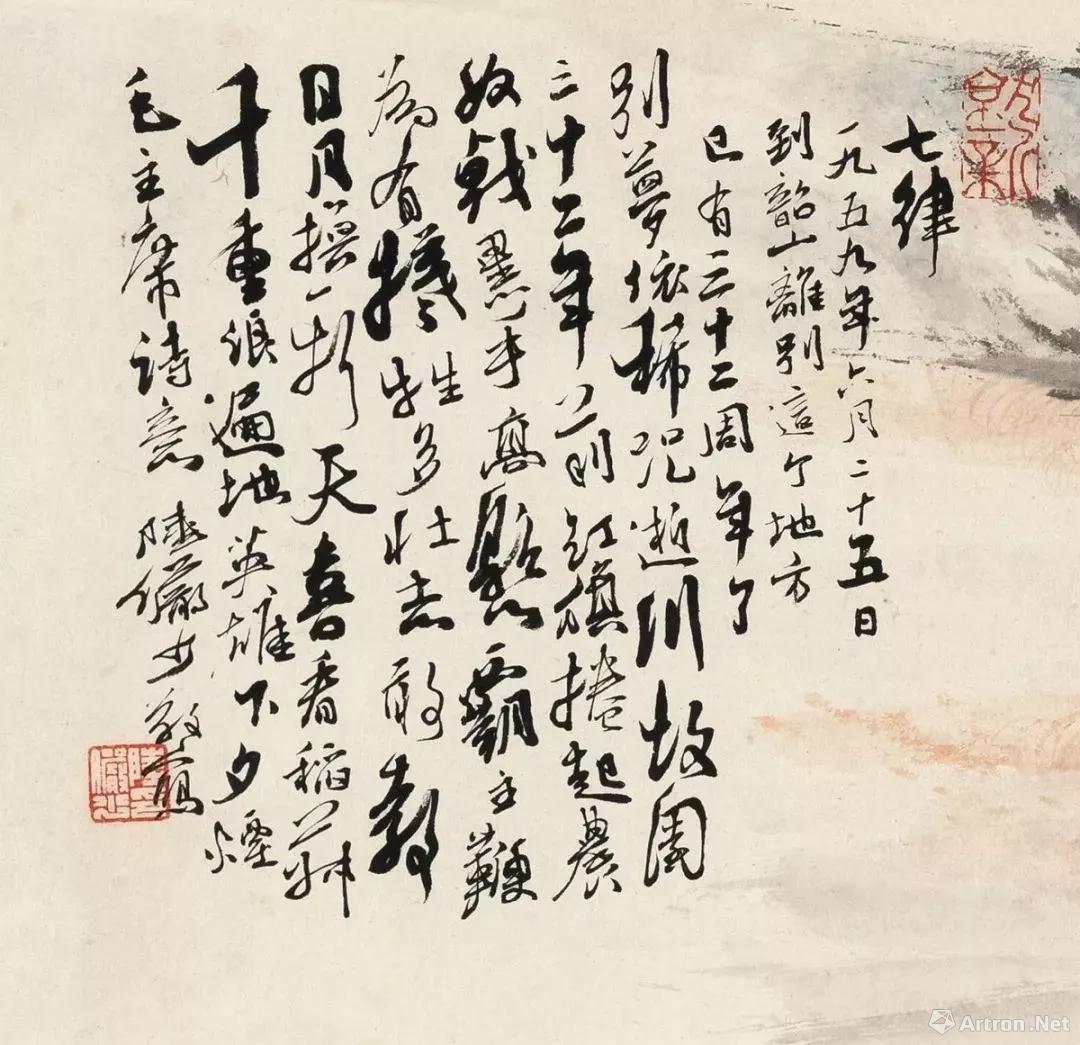 七律
一九五九年六月二十五日
到韶山離别這个地方
已有三十二周年了
别夢依稀咒逝川故園
三十二年前紅旗捲起農
奴戟黑手高懸霸主鞭
為有犧牲多壮志敢教
日月換新天喜看稻菽
千重浪遍地英雄下夕煙
毛主席詩意 陸儼少敬寫
Artron.Net